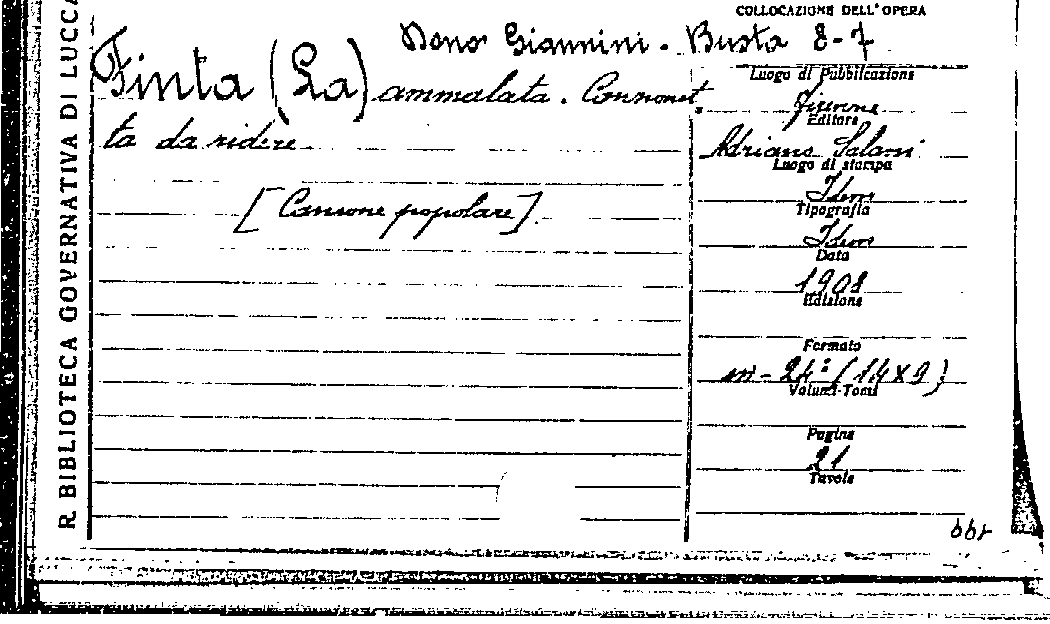 R. BIBLIOTECA GOVERNATIVA DI LUCCA
COLLOCAZIONE DELL'OPERA
Dono Giannini - Busta 8-7
Finta (La) ammalata. Canzonet
ta da ridere
[Canzone popolare]
Luogo di Pubblicazione
Firenze
Editore
Adriano Salani
Luogo di stampa
Idem
Tipografia
Idem
Data
1908
Edizione
Formato
in-24° (14x9)
Volumi-Tomi
Pagine
21
Tavole